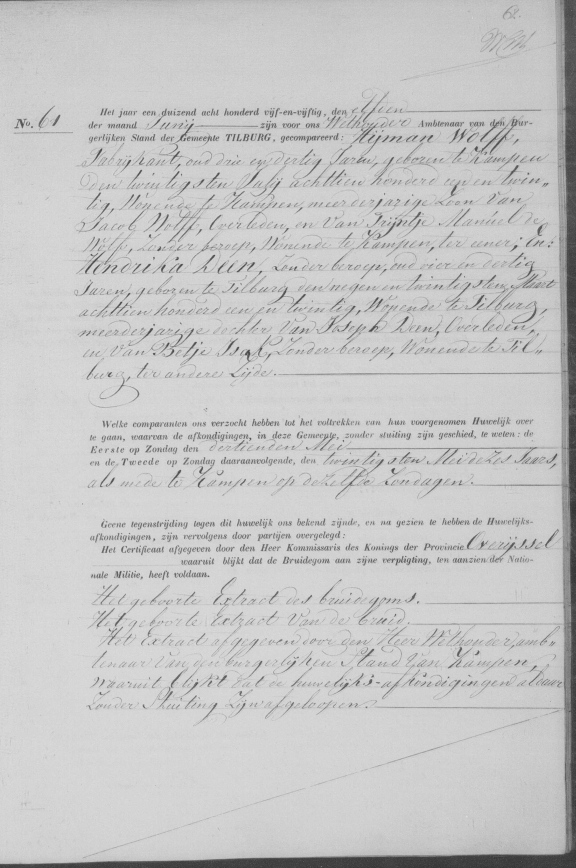 62.
No. 61
Het jaar een duizend acht honderd vijf-en-vijftig, den elfden
der maand Junij zijn voor ons Wethouder Ambtenaar van den Bur-
gerlijken Stand der Gemeente TILBURG, gecompareerd: Hijman Wolff,
Fabrijkant, oud drie en dertig Jaren, geboren te Kampen
den twintigsten Julij achttien honderd een en twin-
tig, Wonende te Kampen, meerderjarige Zoon van
Jacob Wolff, Overleden, en van Trijntje Manuel de
Wolff, Zonder beroep, Wonende te Kampen, ter eener; En:
Hendrika Deen, Zonder beroep, oud vier en dertig
Jaren, geboren te Tilburg den negen en twintigsten Maart
achttien honderd een en twintig, Wonende te Tilburg,
meerderjarige dochter van Joseph Deen, Overleden,
en van Betje Isak, Zonder beroep, Wonende te Til-
burg, ter andere Zijde.
Welke comparanten ons verzocht hebben tot het voltrekken van hun voorgenomen Huwelijk over
te gaan, waarvan de afkondigingen, in deze Gemeente, zonder stuiting zijn geschied, te weten: de
Eerste op Zondag den dertienden Mei
en de Tweede op Zondag daaraanvolgende, den twintigsten Mei dezes Jaars,
als mede te Kampen op dezelfde Zondagen.
Geene tegenstrijding tegen dit huwelijk ons bekend zijnde, en na gezien te hebben de Huwelijks-
afkondigingen, zijn vervolgens door partijen overgelegd:
Het Certificaat afgegeven door den Heer Kommissaris des Konings der Provincie Overijssel
waaruit blijkt dat de Bruidegom aan zijne verpligting, ten aanzien der Natio-
nale Militie, heeft voldaan.
Het geboorte Extract des bruidegoms.
Het geboorte Extract van de bruid.
Het Extract afgegeven door den Heer Wethouder, amb-
tenaar van den burgerlijken Stand van Kampen,
Waaruit blijkt dat de huwelijks-afkondigingen aldaar
Zonder Stuiting Zijn afgeloopen.